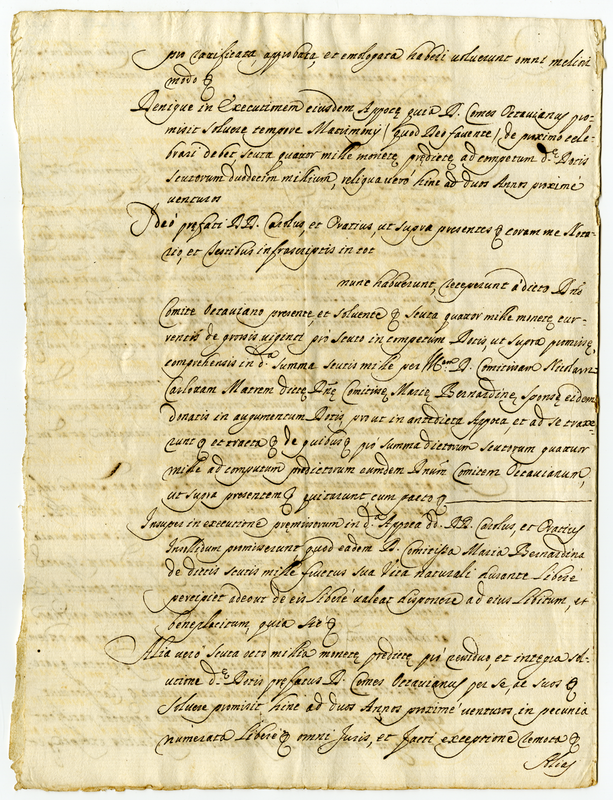 pro ratificata approbata, et emologata haberi voluerunt omni meliori
modo &
Denique in executionem eiusdem Appocę quia D. Comes Octavianus pro-
misit solvere tempore Matrimonij (quod Deo favente) de proximo cele-
brari debet scuta quatuor mille monetę prędictę ad computum d.ę Dotis
scutorum duodecim millium, reliqua verò hinc ad duos Annos proximè
venturos
Ideò prefati DD. Carolus, et Oratius, ut supra presentes & coram me Nota-
rio, et Testibus infrascriptis in tot
nunc habuerunt, receperunt à dicto Dno
Comite Octaviano presente, et solvente & scuta quatuor mille monetę cur-
rentis de paolis viginti pro scuto in computum Dotis, ut supra promissę,
comprehensis in d.a summa scutis mille per D. Comitissam
Carlottam Matrem dictę Dnę Comitissę Marię Bernardinę sponsę eidem
donatis in augumentum Dotis, prout in antedicta Appoca et ad se traxe-
runt & tracta & de quibus & pro summa dictorum scutorum quatuor
mille ad computum predictorum eumdem Dnum Comitem Octavianum,
ut supra presentem & quietarunt cum pacto &
Insuper in executione premissorum in d.a Appoca dd. DD. Carolus, et Oratius
Insolidum promiserunt quod eadem D. Comitissa Maria Bernardina
de dictis scutis mille fructus sua Vita naturali durante liberè
percipiet adeout de eis liberè valeat disponere ad eius libitum, et
beneplacitum, quia sic &
Alia verò scuta octo millia monetę prędictę pro residuo, et integra solu-
tione d.ę Dotis pręfatus D. Comes Octavianus per se, ac suos &
solvere promisit hinc ad duos Annos proximè venturos in pecunia
numerata liberè & omni Juris, et facti exceptione remota &
Alias